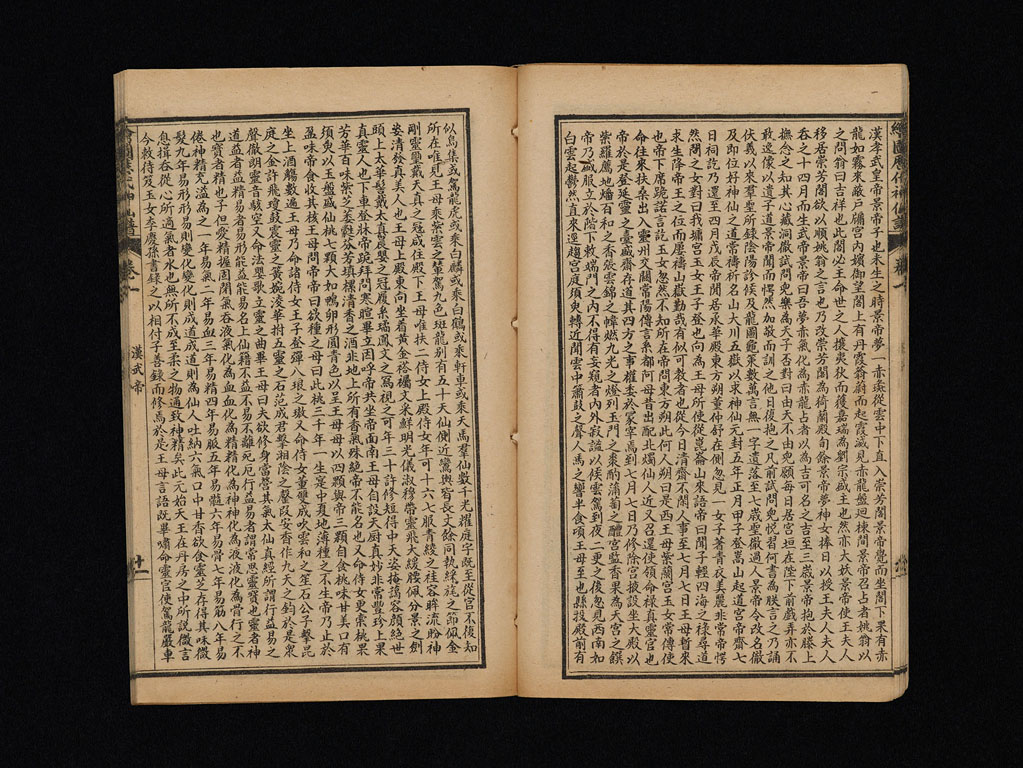 漢孝武皇帝景帝子也未生之時景帝夢一赤彘從雲中下直入崇芳閣景帝覺而坐閣下果有赤
龍如霧來蔽戶牖宮內嬪御望閣上有丹霞蓊蔚而起霞滅見赤龍盤迴棟間景帝召占者姚翁以
之問翁曰吉祥也此閣必生命世之人攘夷狄而獲嘉瑞為劉宗盛主也然亦大妖景帝使王夫人
移居崇芳閣欲以順姚翁之言也乃改崇芳閣為猗蘭殿旬餘景帝夢神女捧日以授王夫人夫人
吞之十四月而生武帝景帝曰吾夢赤氣化為赤龍占者以為吉可名之吉至三歲景帝抱於膝上
撫念之知其心藏洞徹試問兒樂為天子否對曰由天不由兒願每日居宮垣在陛下前戲弄亦不
敢逸像以遺子道景帝聞而愕然加敬而訓之他日復抱之几前試問兒悅習何書為朕言之乃誦
伏羲以來羣聖所錄陰陽診侯及龍圖龜策數萬言無一字遺落至七歲聖徹過人景帝令改名徹
及即位好神仙之道常禱祈名山大川五嶽以求神仙元封五年正月甲子登嵩山起道宮帝齋七
日祠訖乃還至四月戊辰帝閒居承華殿東方朔董仲舒在側忽見一女子著青衣美麗非常帝愕
然問之女對曰我墉宮玉女王子登也向為王母所使從崑崙山來語帝曰聞子輕四海之祿尋道
求生降帝王之位而屢禱山嶽勤哉有似可教者也從今日清齋不閒人事至七月七日王母暫來
也帝下席跪諾言訖玉女忽然不知所在帝問東方朔此何人朔曰是西王母紫蘭宮玉女常傳使
命往來扶桑出入靈州交關常陽傳言系都阿母昔出配北燭仙人近又召還使領命祿真靈宮也
帝於是登延靈之臺盛齋存道其四方之事權委於冢宰焉到七月七日乃修除宮掖設坐大殿以
紫羅薦地燔百和之香張雲錦之幃燃九光之燈列玉門之棗酌蒲萄之醴宮監香果為天宮之饌
帝乃盛服立於階下敕端門之內不得有妄窺者內外寂謐以俟雲駕到夜二更之後忽見西南如
白雲起鬱然直來逕趨宮庭須臾轉近聞雲中簫鼓之聲人馬之響半食頃王母至也縣投殿前有
似鳥集或駕龍虎或乘白麟或乘白鶴或乘軒車或乘天馬羣仙數千光耀庭宇既至從官不復知
所在唯見王母乘紫雲之輦駕九色斑龍別有五十天仙側近鸞輿皆長丈餘同執綵旄之節佩金
剛靈璽戴天真之冠咸住殿下王母唯扶二侍女上殿侍女年可十六七服青綾之袿容眸流盼神
姿清發真美人也王母上殿東向坐着黃金褡襡文采鮮明光儀淑穆帶靈飛大綬腰佩分景之劍
頭上太華髻戴太真晨嬰之冠履系璚鳳文之舄視之可年三十許修短得中天姿掩藹容顏絕世
真靈人也下車登牀帝跪拜問寒暄畢立因呼帝共坐帝面南王母自設天厨真妙非常豐珍上果
芳華百味紫芝萎蕤芬芳填樏清香之酒非地上所有香氣殊絕帝不能名也又命侍女更索桃果
須臾以玉盤盛仙桃七顆大如鴨卵形圓青色以呈王母母以四顆與帝三顆自食桃味甘美口有
盈味帝食收其核王母問帝帝曰欲種之母曰此桃三千一生實中夏地薄種之不生帝乃止於
坐上酒觴數遍王母乃命諸侍女王子登彈八琅之璈又命侍女董雙成吹雲和之笙石公子擊昆
庭之金許飛瓊鼓震靈之簧婉淩華拊五靈之石范成君擊湘陰之磬段安香作九天之鈞於是衆
聲徹朗靈音駭空又命法嬰歌立靈之曲畢王母曰夫欲修身當營其氣太仙真經所謂行益易之
道益者益精易者易形能益能易名上仙籍不益不易不離死厄行益易者謂常思靈寶也靈者神
也寶者精也子但愛精握固閉氣吞液氣化為血血化為精精化為神神化為液液化為骨行之不
倦神精充溢為之一年易氣二年易血三年易精四年易脈五年易髓六年易骨七年易筋八年易
髮九年易形形易則變化變化則成道成道則為仙人吐納六氣口中甘香欲食靈芝存得其味微
息揖吞從心所適氣者水也無所不成至柔之物通致神精矣此元始天王在丹房之中所說微言
今敕侍笈玉女李慶孫書錄之以相付子善錄而修焉於是王母言語既畢嘯命靈官使駕龍嚴車
漢武帝
十一